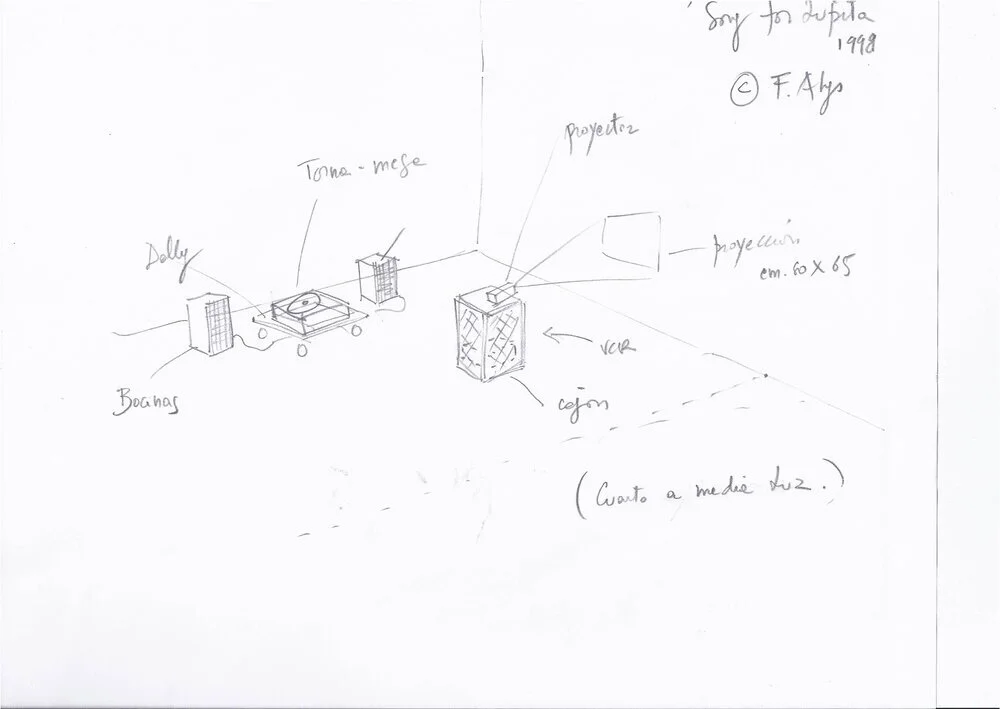 'Song for Lupita
1998
© F. Alÿs
proyector
Torna-mesa
Dolly
proyección
em. 60 X 65
VCR
Bocinas
cajón
(Cuarto a media Luz.)